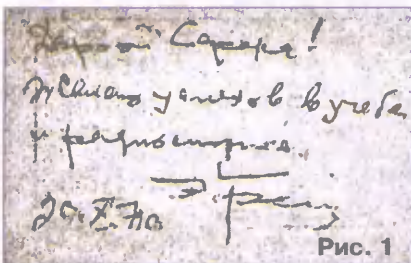 Дорогой Сережа!
Желаю успехов в учебе
и радиоспорте.
30.X.70
Рис. 1